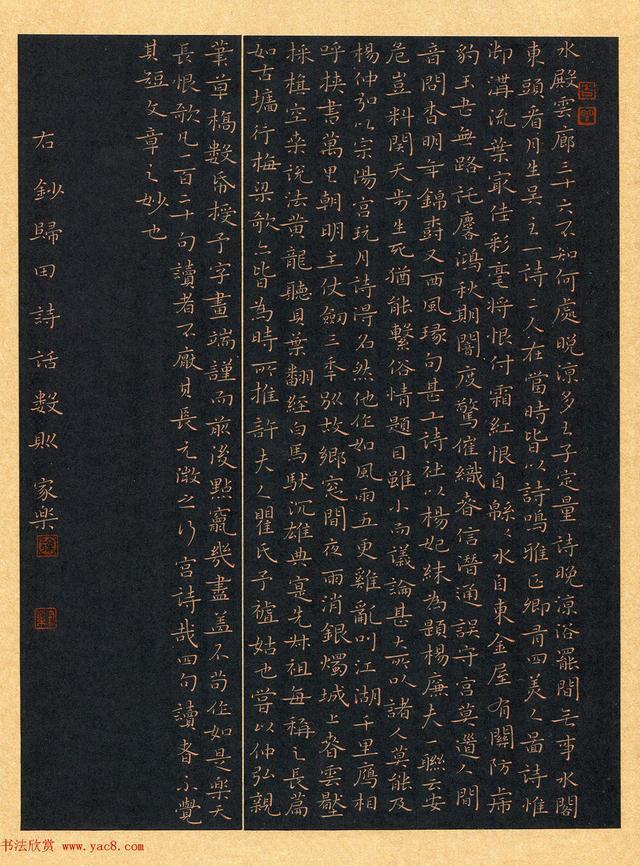 水殿雲廊三十六不知何處晚涼多王子定量詩晚涼浴罷閒無事水閣
東頭看月生吳主一詩二人在當時皆以詩鳴雅正卿有四美人圖詩惟
御溝流葉最佳彩毫將恨付霜紅恨自緜々水自東金屋有關防虎
豹玉書無路託鱗鴻秋期闇度驚催織春信潛通誤守宮莫道人間
音問杳明年錦樹又西風琢句甚工詩社以楊妃襪為題楊廉夫一聯云安
危豈料關天步生死猶能繫俗情題目雖小而議論甚大所以諸人莫能及
楊仲弘以宗陽宮玩月詩得名然他作如風雨五更雞亂叫江湖千里鴈相
呼挾書萬里朝明主仗劍三年別故鄉窓間夜雨消銀燭城上春雲壓
綵旗空桑說法黃龍聽貝葉翻經白馬馱沉雄典實先叔祖每稱之長篇
如古墻行梅梁歌亦皆為時所推許夫人瞿氏予祖姑也嘗以仲弘親
筆草稿數帋授予字畫端謹而前後點竄幾盡蓋不苟作如是樂天
長恨歌凡一百二十句讀者不厭其長元微之行宮詩才四句讀者不覺
其短文章之妙也
右鈔歸田詩話數則 家樂
书法欣赏 www.yac8.com